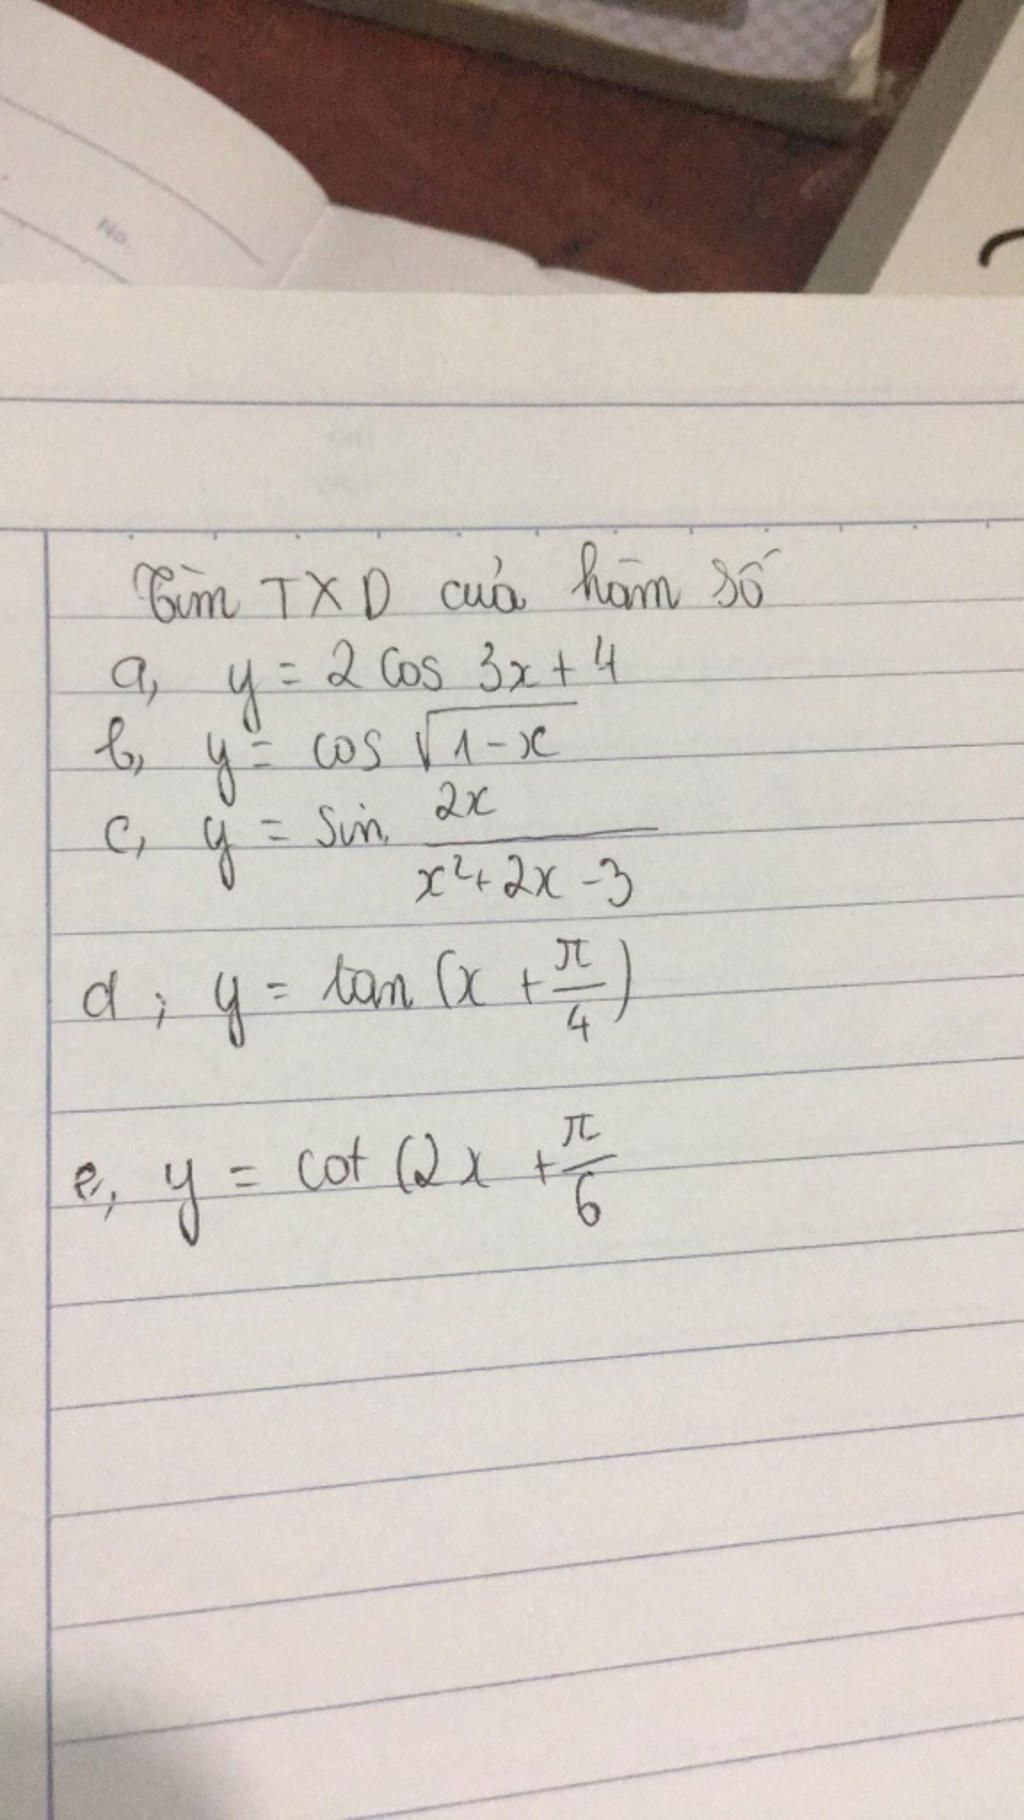 No.
Tìm TXD của hàm số
a, y = 2 cos 3x + 4
b, y = cos √(1-x)
c, y = sin 2x / (x² + 2x - 3)
d, y = tan (x + π/4)
e, y = cot (2x + π/6